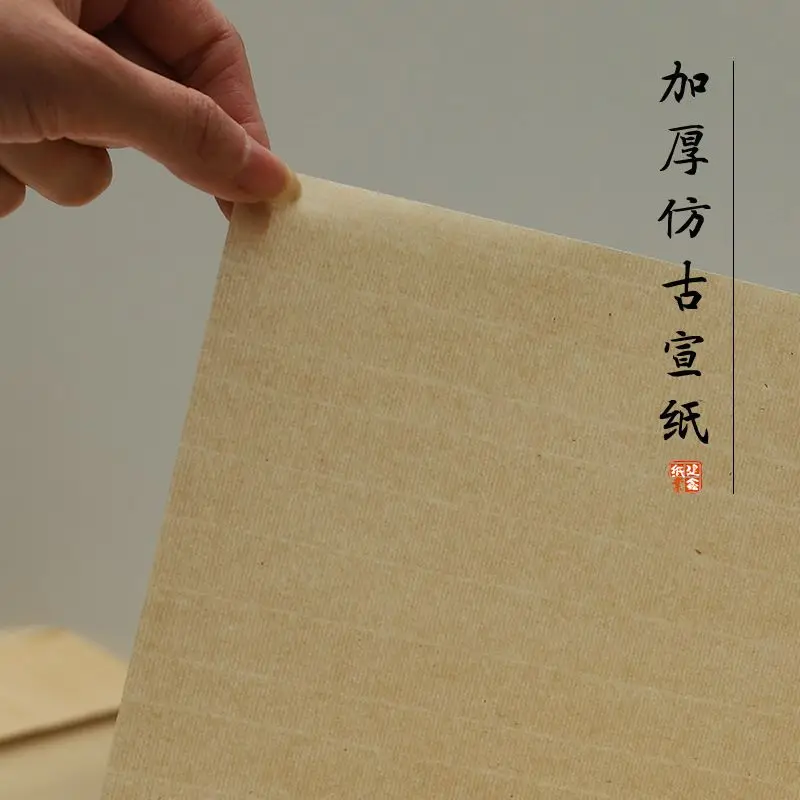 加厚仿古宣纸